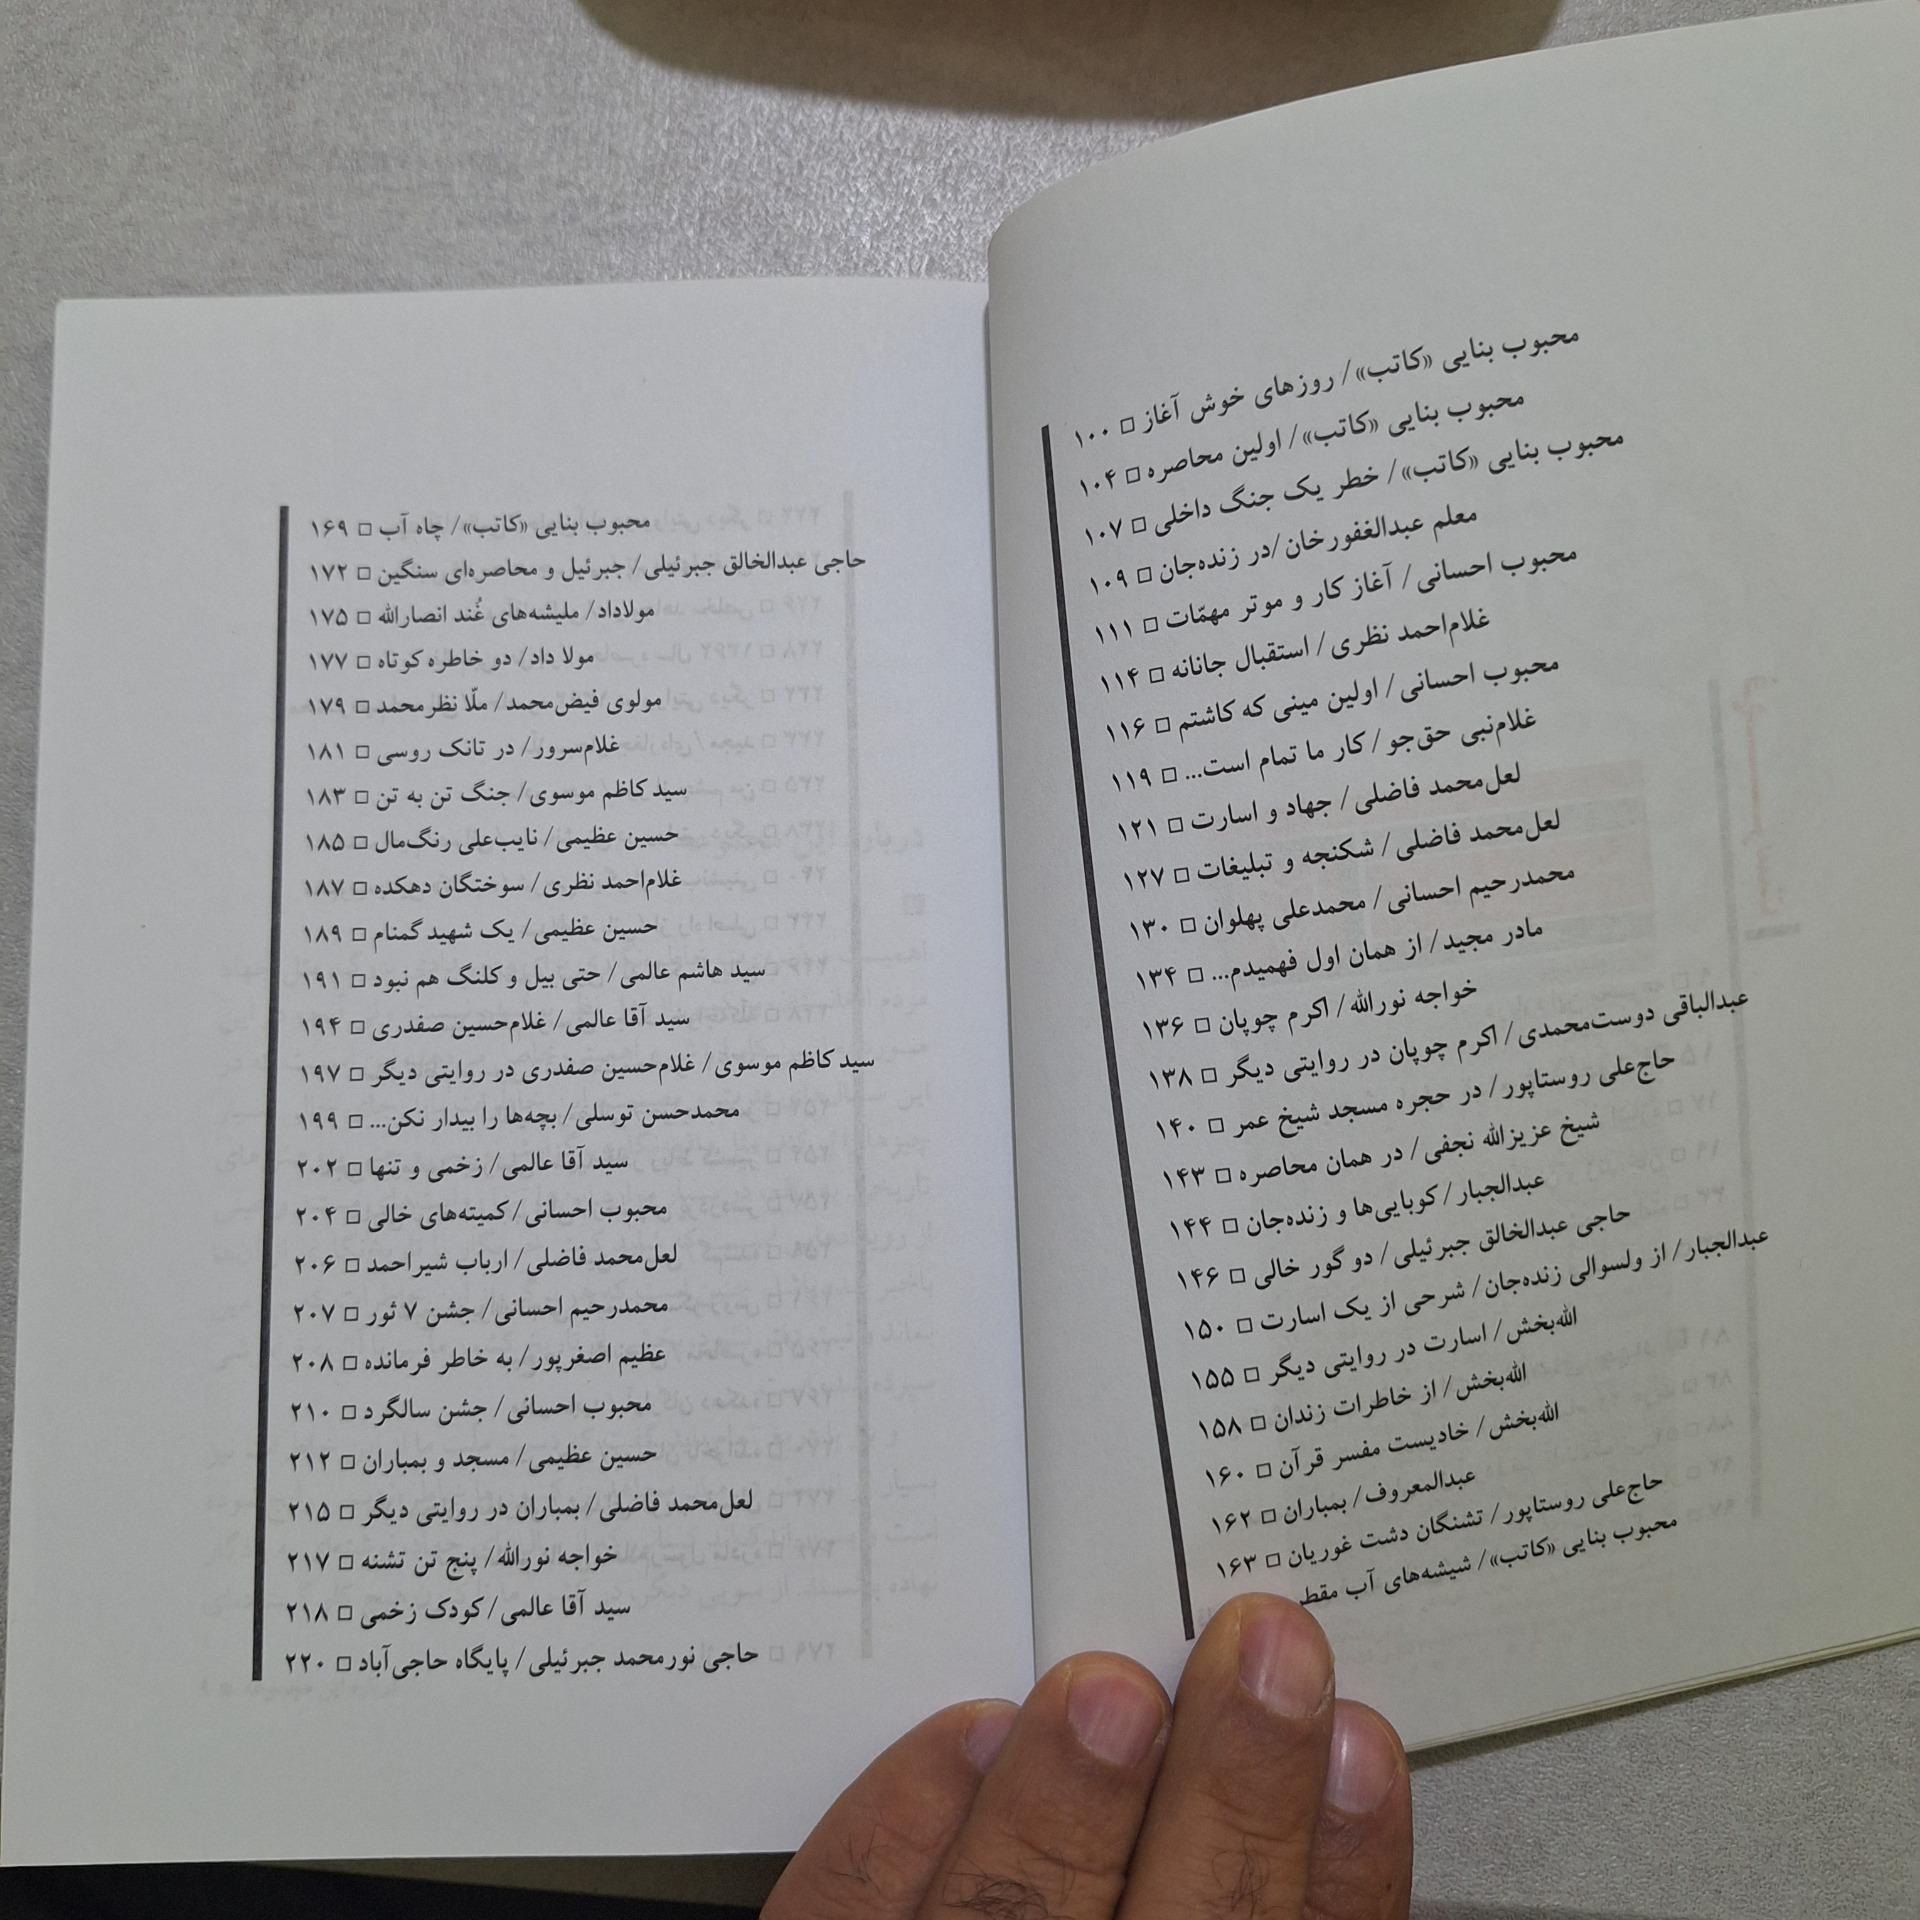 محبوب بنایی «کاتب»/ روزهای خوش آغاز □ ۱۰۰
محبوب بنایی «کاتب»/ اولین محاصره □ ۱۰۴
محبوب بنایی «کاتب»/ خطر یک جنگ داخلی □ ۱۰۷
معلم عبدالغفورخان /در زنده‌جان □ ۱۰۹
محبوب احسانی/ آغاز کار و موتر مهمّات □ ۱۱۱
غلام‌احمد نظری/ استقبال جانانه □ ۱۱۴
محبوب احسانی/ اولین مینی که کاشتم □ ۱۱۶
غلام‌نبی حق‌جو/ کار ما تمام است... □ ۱۱۹
لعل‌محمد فاضلی/ جهاد و اسارت □ ۱۲۱
لعل‌محمد فاضلی/ شکنجه و تبلیغات □ ۱۲۷
محمدرحیم احسانی/ محمدعلی پهلوان □ ۱۳۰
مادر مجید/ از همان اول فهمیدم... □ ۱۳۴
خواجه نورالله/ اکرم چوپان □ ۱۳۶
عبدالباقی دوست‌محمدی/ اکرم چوپان در روایتی دیگر □ ۱۳۸
حاج‌علی روستاپور/ در حجره مسجد شیخ عمر □ ۱۴۰
شیخ عزیزالله نجفی/ در همان محاصره □ ۱۴۳
عبدالجبار/ کوبایی‌ها و زنده‌جان □ ۱۴۴
حاجی عبدالخالق جبرئیلی/ دو گور خالی □ ۱۴۶
عبدالجبار/ از ولسوالی زنده‌جان/ شرحی از یک اسارت □ ۱۵۰
الله‌بخش/ اسارت در روایتی دیگر □ ۱۵۵
الله‌بخش/ از خاطرات زندان □ ۱۵۸
الله‌بخش/ خادیست مفسر قرآن □ ۱۶۰
عبدالمعروف/ بمباران □ ۱۶۲
حاج‌علی روستاپور/ تشنگان دشت غوریان □ ۱۶۳
محبوب بنایی «کاتب»/ شیشه‌های آب مقطر
محبوب بنایی «کاتب»/ چاه آب □ ۱۶۹
حاجی عبدالخالق جبرئیلی/ جبرئیل و محاصره‌ای سنگین □ ۱۷۲
مولاداد/ ملیشه‌های غُند انصارالله □ ۱۷۵
مولا داد/ دو خاطره کوتاه □ ۱۷۷
مولوی فیض‌محمد/ ملّا نظرمحمد □ ۱۷۹
غلام‌سرور/ در تانک روسی □ ۱۸۱
سید کاظم موسوی/ جنگ تن به تن □ ۱۸۳
حسین عظیمی/ نایب‌علی رنگ‌مال □ ۱۸۵
غلام‌احمد نظری/ سوختگان دهکده □ ۱۸۷
حسین عظیمی/ یک شهید گمنام □ ۱۸۹
سید هاشم عالمی/ حتی بیل و کلنگ هم نبود □ ۱۹۱
سید آقا عالمی/ غلام‌حسین صفدری □ ۱۹۴
سید کاظم موسوی/ غلام‌حسین صفدری در روایتی دیگر □ ۱۹۷
محمدحسن توسلی/ بچه‌ها را بیدار نکن... □ ۱۹۹
سید آقا عالمی/ زخمی و تنها □ ۲۰۲
محبوب احسانی/ کمیته‌های خالی □ ۲۰۴
لعل‌محمد فاضلی/ ارباب شیراحمد □ ۲۰۶
محمدرحیم احسانی/ جشن ۷ ثور □ ۲۰۷
عظیم اصغرپور/ به خاطر فرمانده □ ۲۰۸
محبوب احسانی/ جشن سالگرد □ ۲۱۰
حسین عظیمی/ مسجد و بمباران □ ۲۱۲
لعل‌محمد فاضلی/ بمباران در روایتی دیگر □ ۲۱۵
خواجه نورالله/ پنج تن تشنه □ ۲۱۷
سید آقا عالمی/ کودک زخمی □ ۲۱۸
حاجی نورمحمد جبرئیلی/ پایگاه حاجی‌آباد □ ۲۲۰